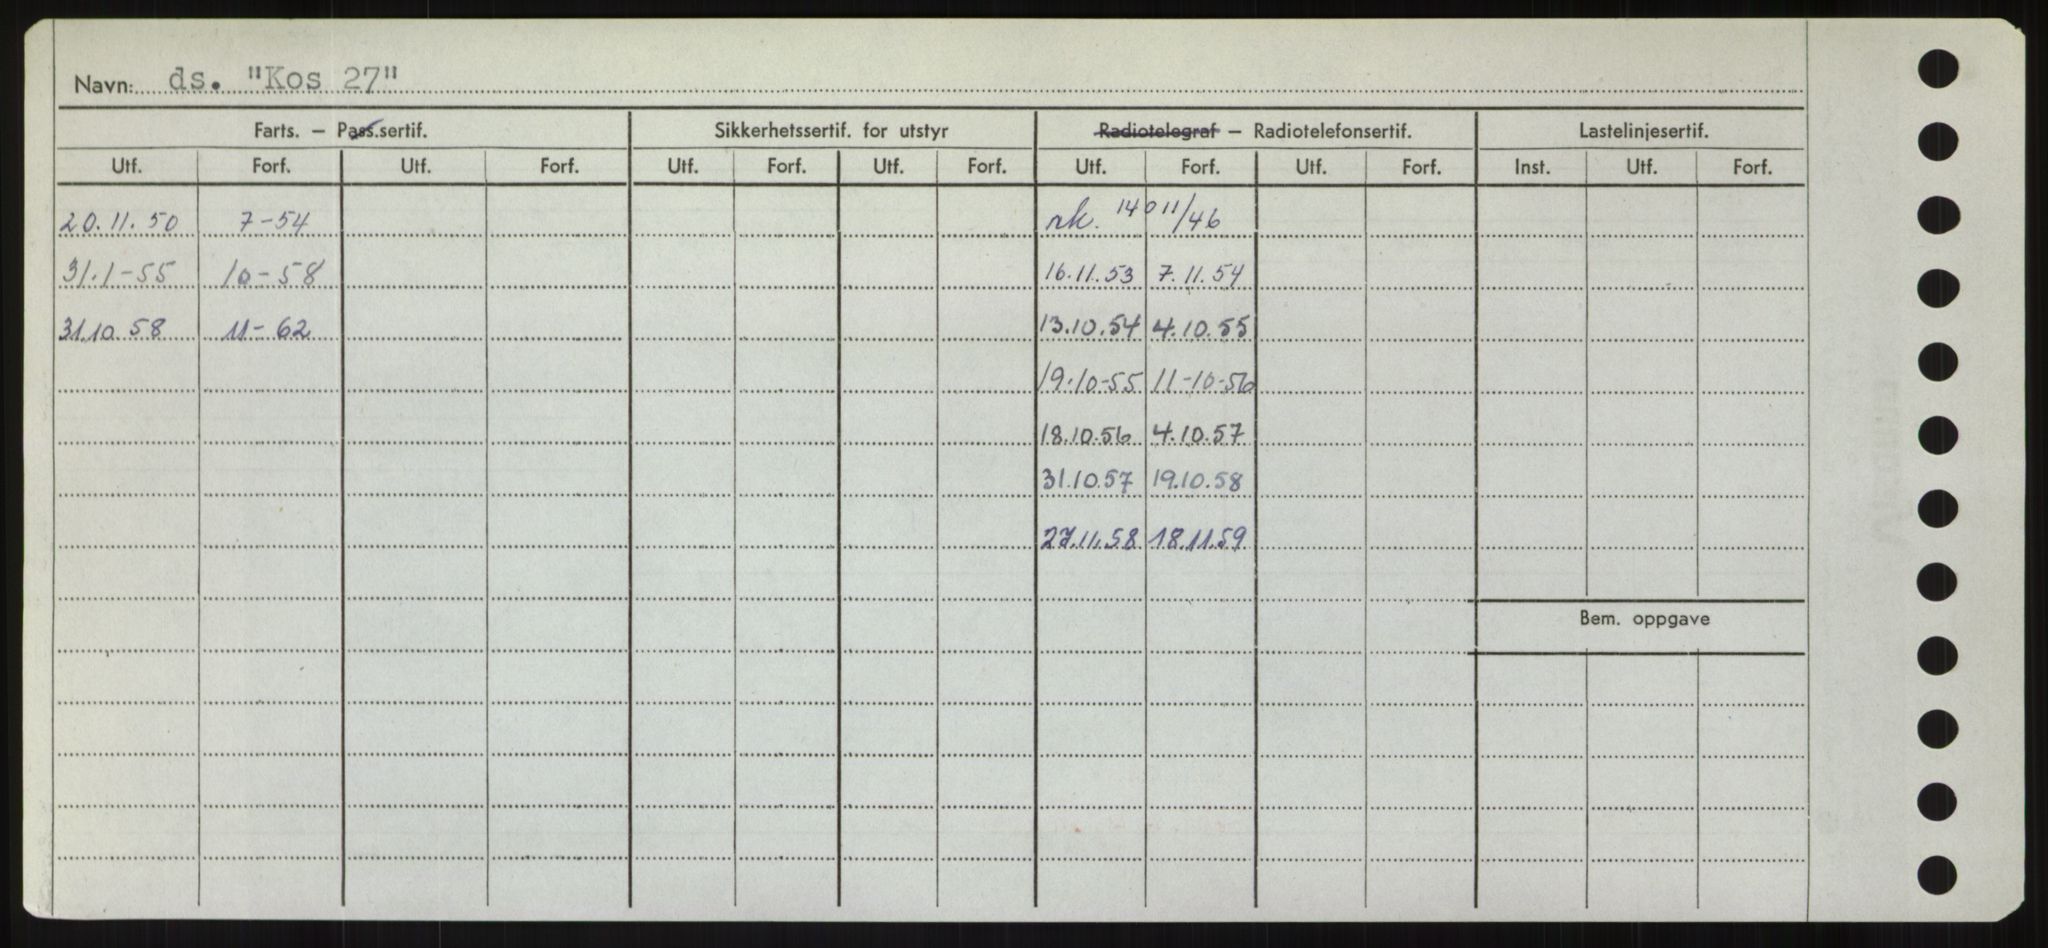 Navn: ds. "Kos 27"
Farts. – Pass.sertif. Sikkerhetssertif. for utstyr Radiotelegraf – Radiotelefonsertif. Lastelinjesertif.
Utf. Forf. Utf. Forf. Utf. Forf. Utf. Forf. Utf. Forf. Utf. Forf. Inst. Utf. Forf.
20.11.50 7-54 rk. 14011/46
31.1-55 10-58 16.11.53 7.11.54
31.10.58 11-62 13.10.54 4.10.55
19.10-55 11-10-56
18.10.56 4.10.57
31.10.57 19.10.58
27.11.58 18.11.59
Bem. oppgave